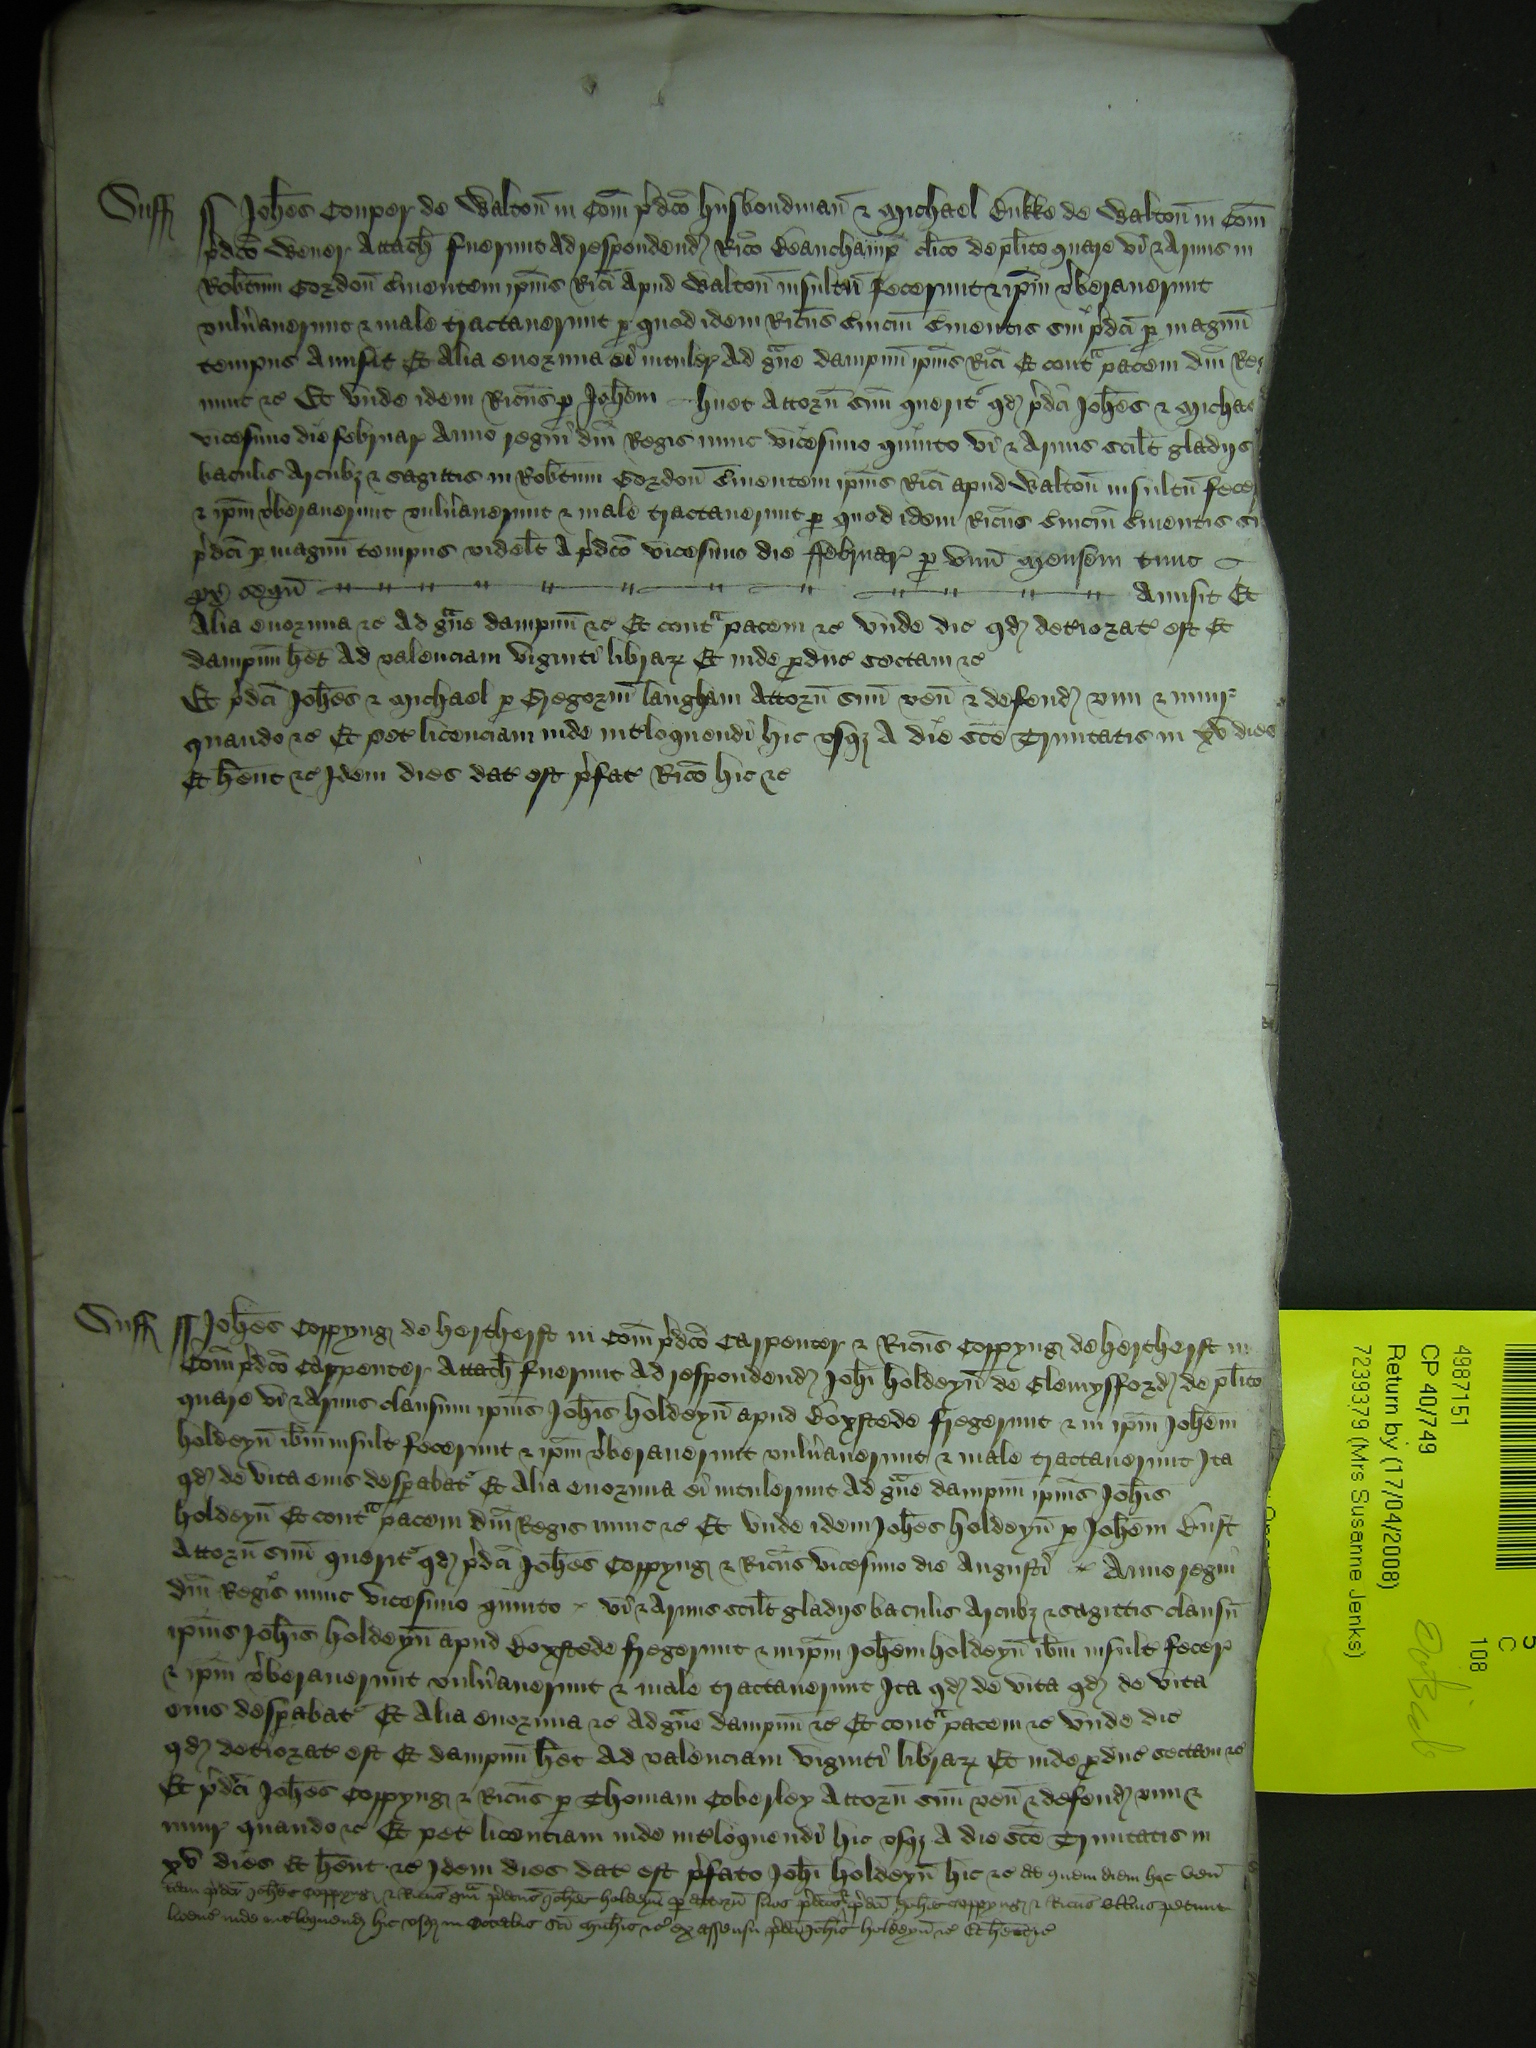 Suff ss Joh̄es Couper de Walton̄ in Com̄ p̄dc̄o husbondman̄ & Michael Bukke de Walton̄ in Com̄
p̄dc̄o Wever Attach̄ fuerunt ad respondend Ric̄o Beauchamp̄ cl̄ico de pl̄ito quare vi & armis in
Rob̄tum Gordon̄ svientem ip̄ius Rici Apud Walton̄ insultū fecerunt & ip̄m v̄beraverunt
vuln̄averunt & male tractaverunt p quod idem Ric̄us svic̄iu svientis sui p̄dc̄i p magnū
tempus Amisit Et Alia enormia ei intuler Ad gve dampnū ip̄ius Rici Et contra pacem dn̄i Reg
nunc &c Et unde idem Ric̄us p Joh̄em huet Attorn̄ suū querit qd p̄dc̄i Joh̄es & Michael
vicesimo die februar Anno regni dn̄i Regis nunc vicesimo quinto vi & Armis scil̄t gladijs
baculis Arcubz & sagittis in Rob̄tum Gordon̄ svientem ip̄ius Rici apud Walton̄ insultū fecer
& ip̄m v̄beraverunt vuln̄averunt & male tractaverunt p quod idem Ric̄us svic̄iu svientis sui
p̄dc̄i p magnū tempus videl̄t A p̄dc̄o vicesimo die ffebruar p unū mensem tunc
px̄ sequn̄ Amisit Et
Alia enormia &c Ad gve dampnū &c Et contra pacem &c Unde dic qd deteriorat est Et
dampnū h̄et Ad valenciam viginti librar Et inde p̄duc sectam &c
Et p̄dc̄i Joh̄es & Michael p Gregoriū langham Attorn̄ suū ven̄ & defend vim & iniur
quando &c Et pet licenciam inde int̄loquendi hic usqz A die sc̄e Trinitatis in xv dies
Et h̄ent &c Idem dies dat est p̄fat Ric̄o hic &c
Suff ss Joh̄es Coppyng de hertherst in Com̄ p̄dc̄o Carpenter & Ric̄us Coppyng de hertherst in
Com̄ p̄dc̄o Carpenter Attach̄ fuerunt Ad respondend Joh̄i holdeyn̄ de Glemysford de pl̄ito
quare vi & Armis clausum ip̄ius Joh̄is holdeyn̄ apud Boxstede fregerunt & in ip̄m Joh̄em
holdeyn̄ ib̄m insult fecerunt & ip̄m v̄beraverunt vuln̄averunt & male tractaverunt Ita
qd de vita eius desp̄abat Et Alia enormia ei intulerunt Ad gve dampnū ip̄ius Joh̄is
holdeyn̄ Et contra pacem dn̄i Regis nunc &c Et unde idem Joh̄es holdeyn̄ p Joh̄em Bust
Attorn̄ suū querit qd p̄dc̄i Joh̄es Coppyng & Ric̄us vicesimo die Augusti Anno regni
dn̄i Regis nunc vicesimo quinto vi & Armis scil̄t gladijs baculis Arcubz & sagittis clausū
ip̄ius Joh̄is holdeyn̄ apud Boxstede fregerunt & in ip̄m Joh̄em holdeyn̄ ib̄m insult fecer
& ip̄m v̄beraverunt vuln̄averunt & male tractaverunt Ita qd de vita qd de vita
eius desp̄abat Et Alia enormia &c Ad gve dampnū &c Et contra pacem &c Unde dic
qd deteriorat est Et dampnū h̄et Ad valenciam viginti librar Et inde p̄duc sectam &c
Et p̄dc̄i Joh̄es Coppyng & Ric̄us p Thomam Coberley Attorn̄ suū ven̄ & defend vim &
iniur quando &c Et pet licenciam inde int̄loquendi hic usqz A die sc̄e Trinitatis in
xv dies Et h̄ent &c Idem dies dat est p̄fato Joh̄i holdeyn̄ hic &c ad quem diem hic ven̄
tam p̄dc̄i Joh̄es Coppyng & Ric̄us qm̄ p̄dictus Joh̄es holdeyn̄ p attorn̄ suos p̄dictos & p̄dc̄i Joh̄es Coppyng & Ric̄us ult̄ius petunt
licenc inde int̄loquend hic usqz in Octabis sc̄i Mich̄is &c ex assensu p̄dc̄i Joh̄is holdeyn̄ &c Et h̄ent &c
4987151
CP 40/749
Return by (17/04/2008)
7239379 (Mrs Susanne Jenks)
5
C
108